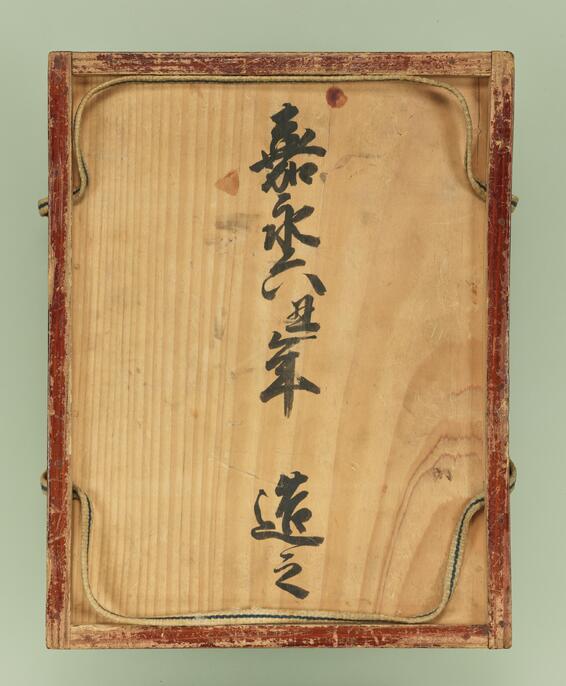 嘉永六丑年 造之